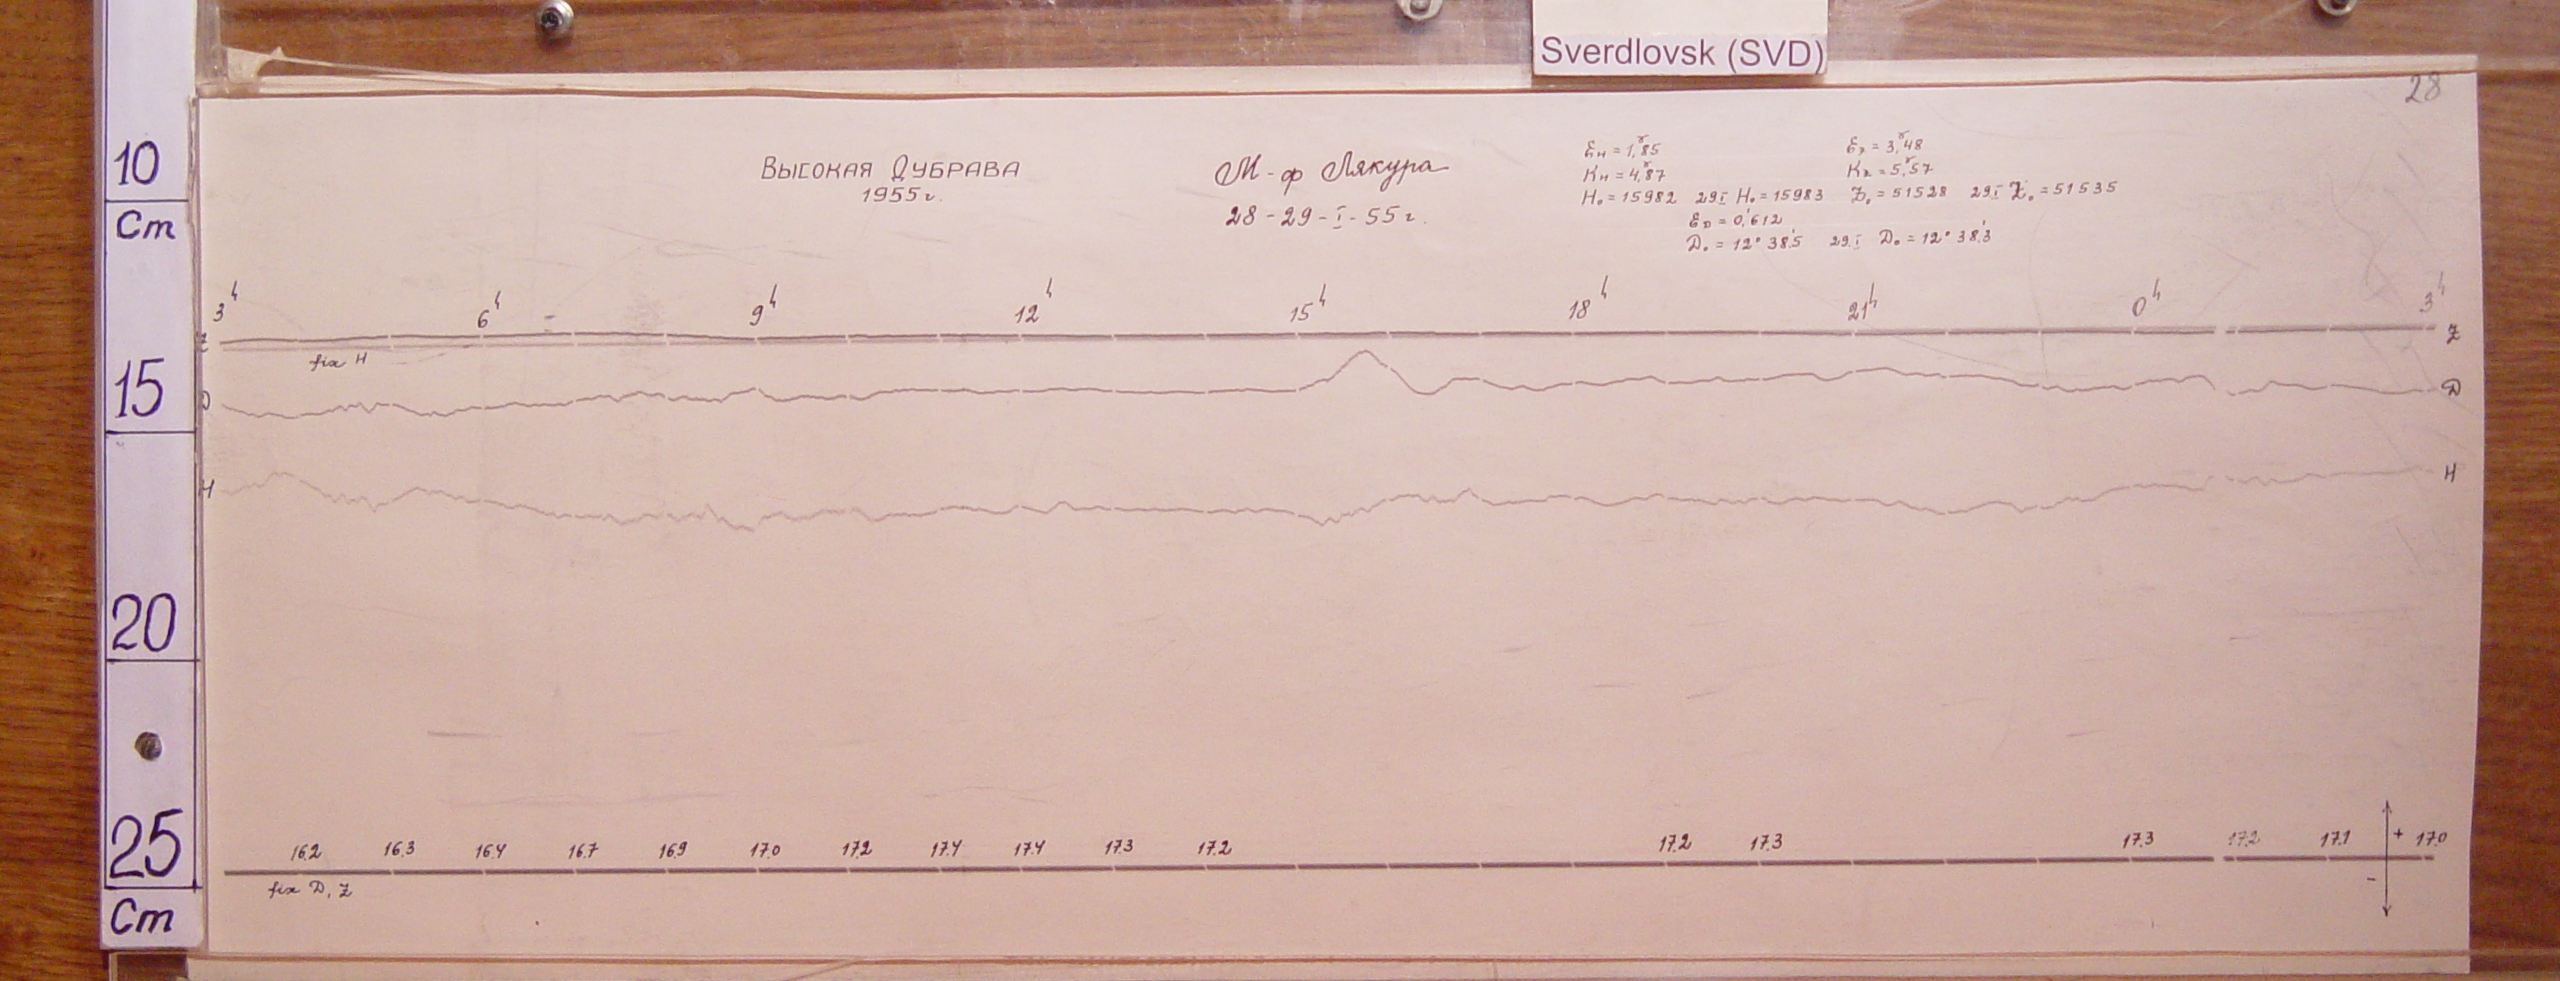 Sverdlovsk (SVD)
28
10
Cm
15
20
25
Cm
ВЫСОКАЯ ДУБРАВА
1955 г.
М-ф Лякура
28 - 29 - I - 55 г.
Ɛн = 1,ᵞ85 Ɛz = 3,ᵞ48
Kн = 4,ᵞ87 Kz = 5,ᵞ57
H₀ = 15982 29.I H₀ = 15983 Z₀ = 51528 29.I Z₀ = 51535
ƐD = 0,′612
D₀ = 12° 38,′5 29.I D₀ = 12° 38,′3
3ʰ 6ʰ 9ʰ 12ʰ 15ʰ 18ʰ 21ʰ 0ʰ 3ʰ
Z Z
fix H
D D
H H
16.2 16.3 16.4 16.7 16.9 17.0 17.2 17.4 17.4 17.3 17.2 17.2 17.3 17.3 17.2 17.1 + 17.0
-
fix D, Z